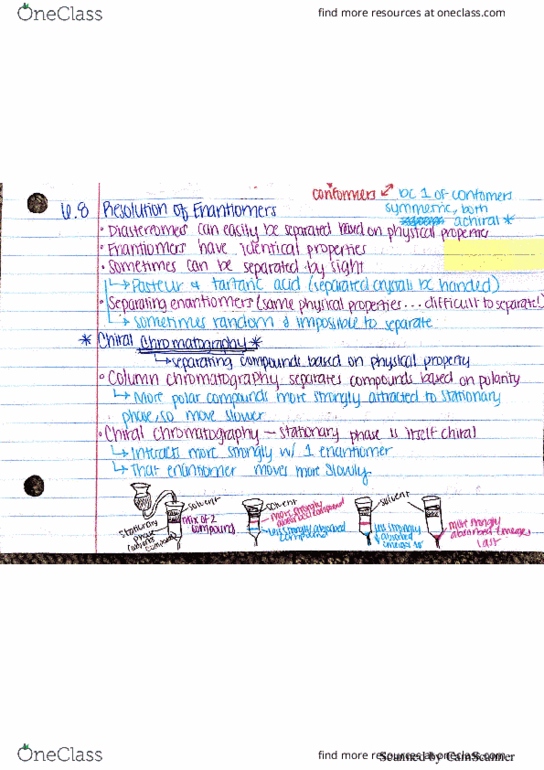 OneClass
find more resources at oneclass.com
conformers bc 1 of contomers
symmetric, both
achiral *
6.8 Resolution of Enantiomers
• Diastereomers can easily be separated based on physical properties
• Enantiomers have identical properties
• Sometimes can be separated by sight
↳ Pasteur & tartaric acid (separated crystals bc handed)
• Separating enantiomers (same physical properties... difficult to separate!)
↳ sometimes random & impossible to separate
* Chiral Chromatography *
↳ separating compounds based on physical property
• Column chromatography separates compounds based on polarity
↳ More polar compounds more strongly attracted to stationary
phase, so move slower
• Chiral chromatography — stationary phase is itself chiral
↳ Interacts more strongly w/ 1 enantiomer
↳ That enantiomer moves more slowly
solvent
mix of 2
compounds
stationary
phase
solvent
more strongly
compound
less strongly absorbed
compound
solvent
less strongly
absorbed
emerges 1st
more strongly
absorbed emerges
last
OneClass
find more resources at oneclass.com
Scanned by CamScanner